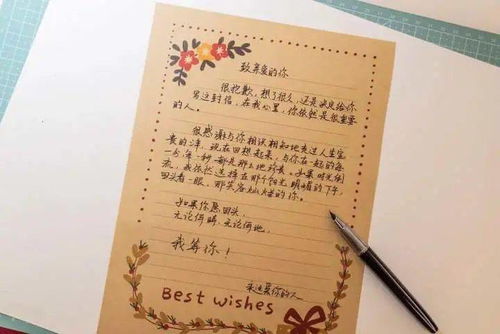 致亲爱的你
很抱歉，想了很久，还是决定给你
写这封信，在我心里，你依然是很重要
的人。
很感谢与你相识相知地走过人生宝
贵的年，现在回想起来，与你在一起的每
一分每一秒都是那么地珍贵。如果时光倒
流，我依然选择在那个阳光明媚的下午，
回头看一眼，那笑容灿烂的你。
如果你愿回头，
无论何时，无论何地，
我等你！
永远爱你的人
Best wishes